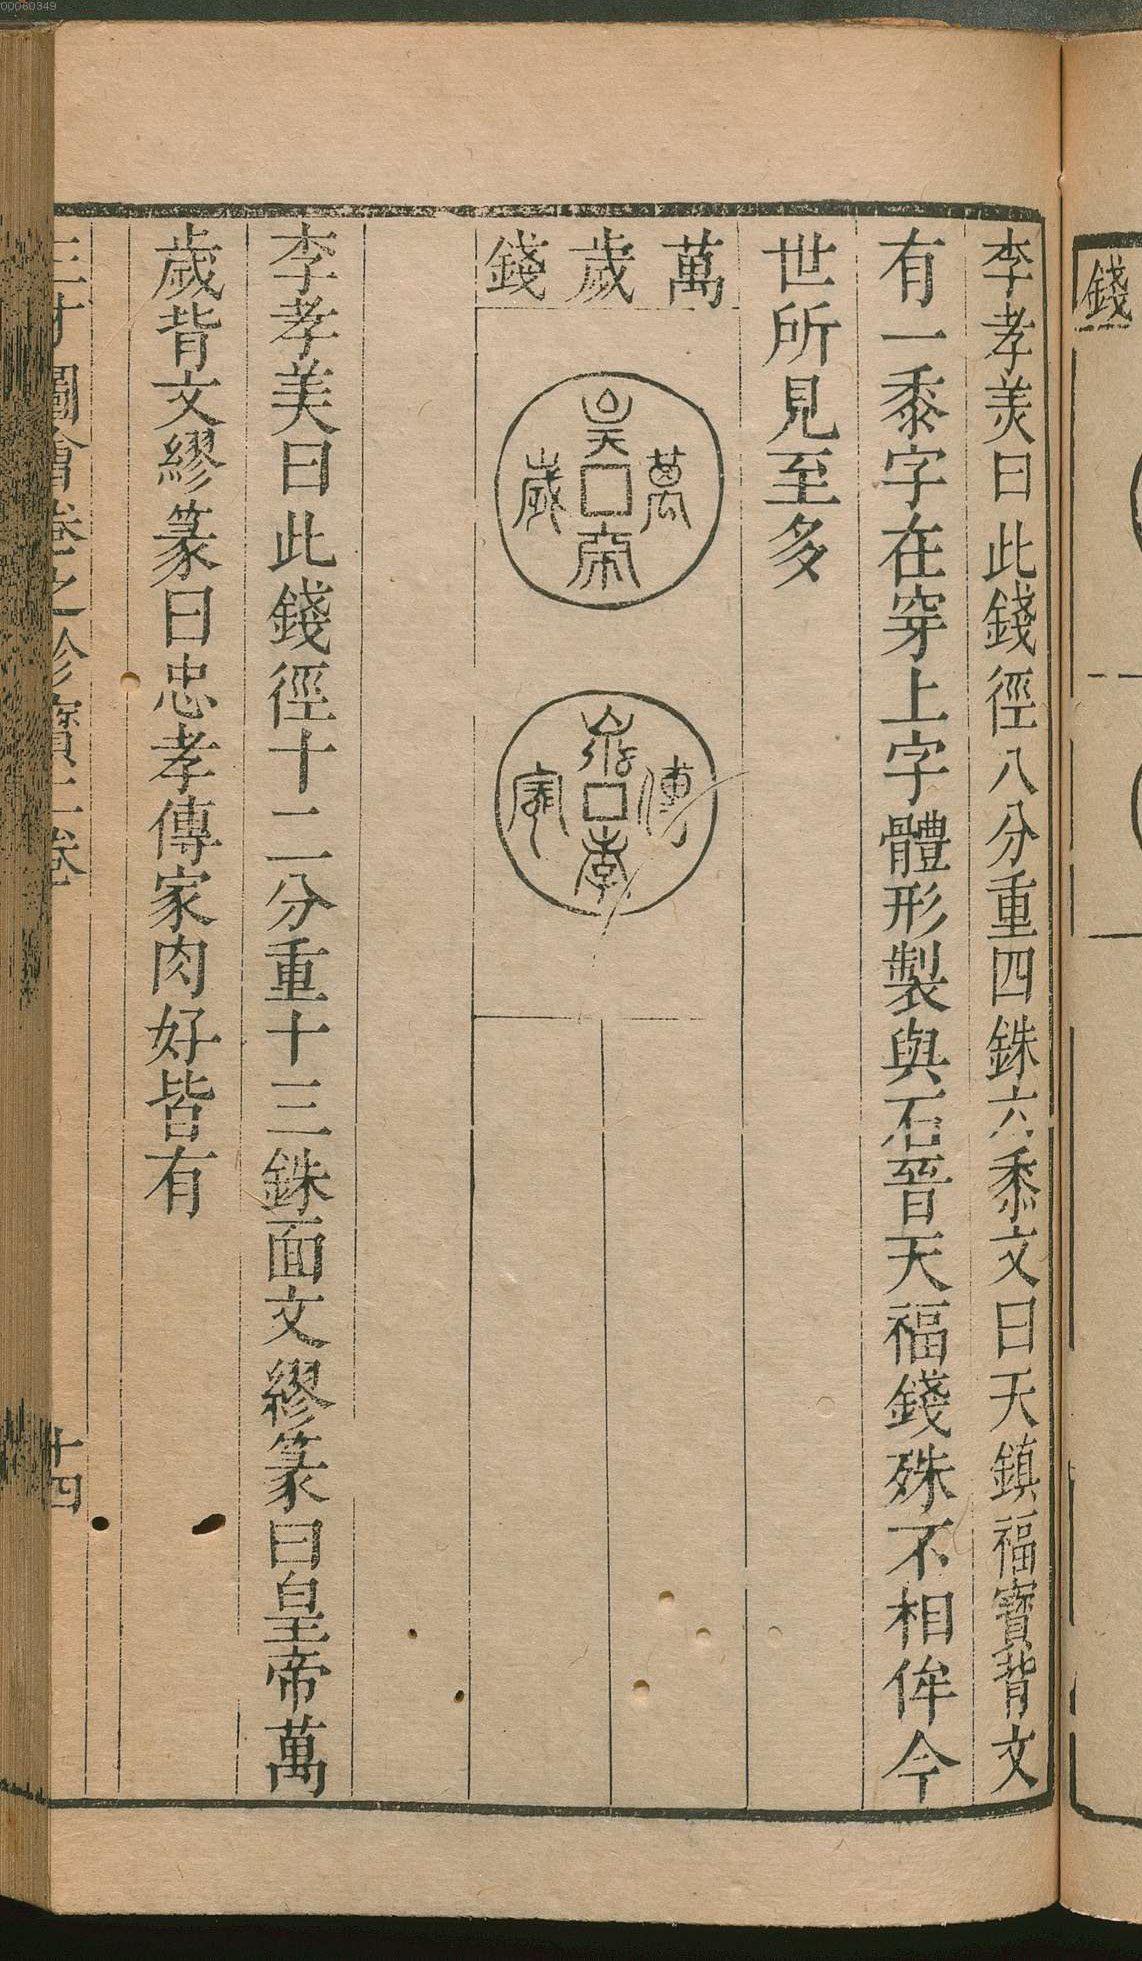 錢
李孝美曰此錢徑八分重四銖六黍文曰天鎮福寶背文
有一黍字在穿上字體形製與石晉天福錢殊不相侔今
世所見至多
萬歲錢
皇帝萬歲
忠孝傳家
李孝美曰此錢徑十二分重十三銖面文繆篆曰皇帝萬
歲背文繆篆曰忠孝傳家肉好皆有
三才圖會卷之珍寶二卷
十四
00060349